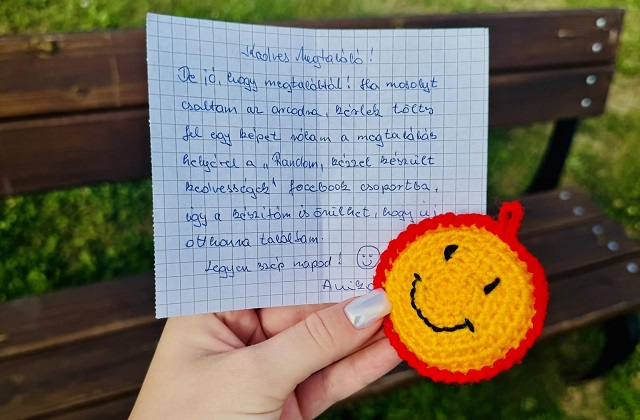 Kedves Megtaláló!
De jó, hogy megtaláltál! Ha mosolyt
csaltam az arcodra, kérlek tölts
fel egy képet rólam a megtalálás
helyéről a „Random, kézzel készült
kedvességek" facebook csoportba,
így a készítőm is örülhet, hogy új
otthonra találtam.
Legyen szép napod!